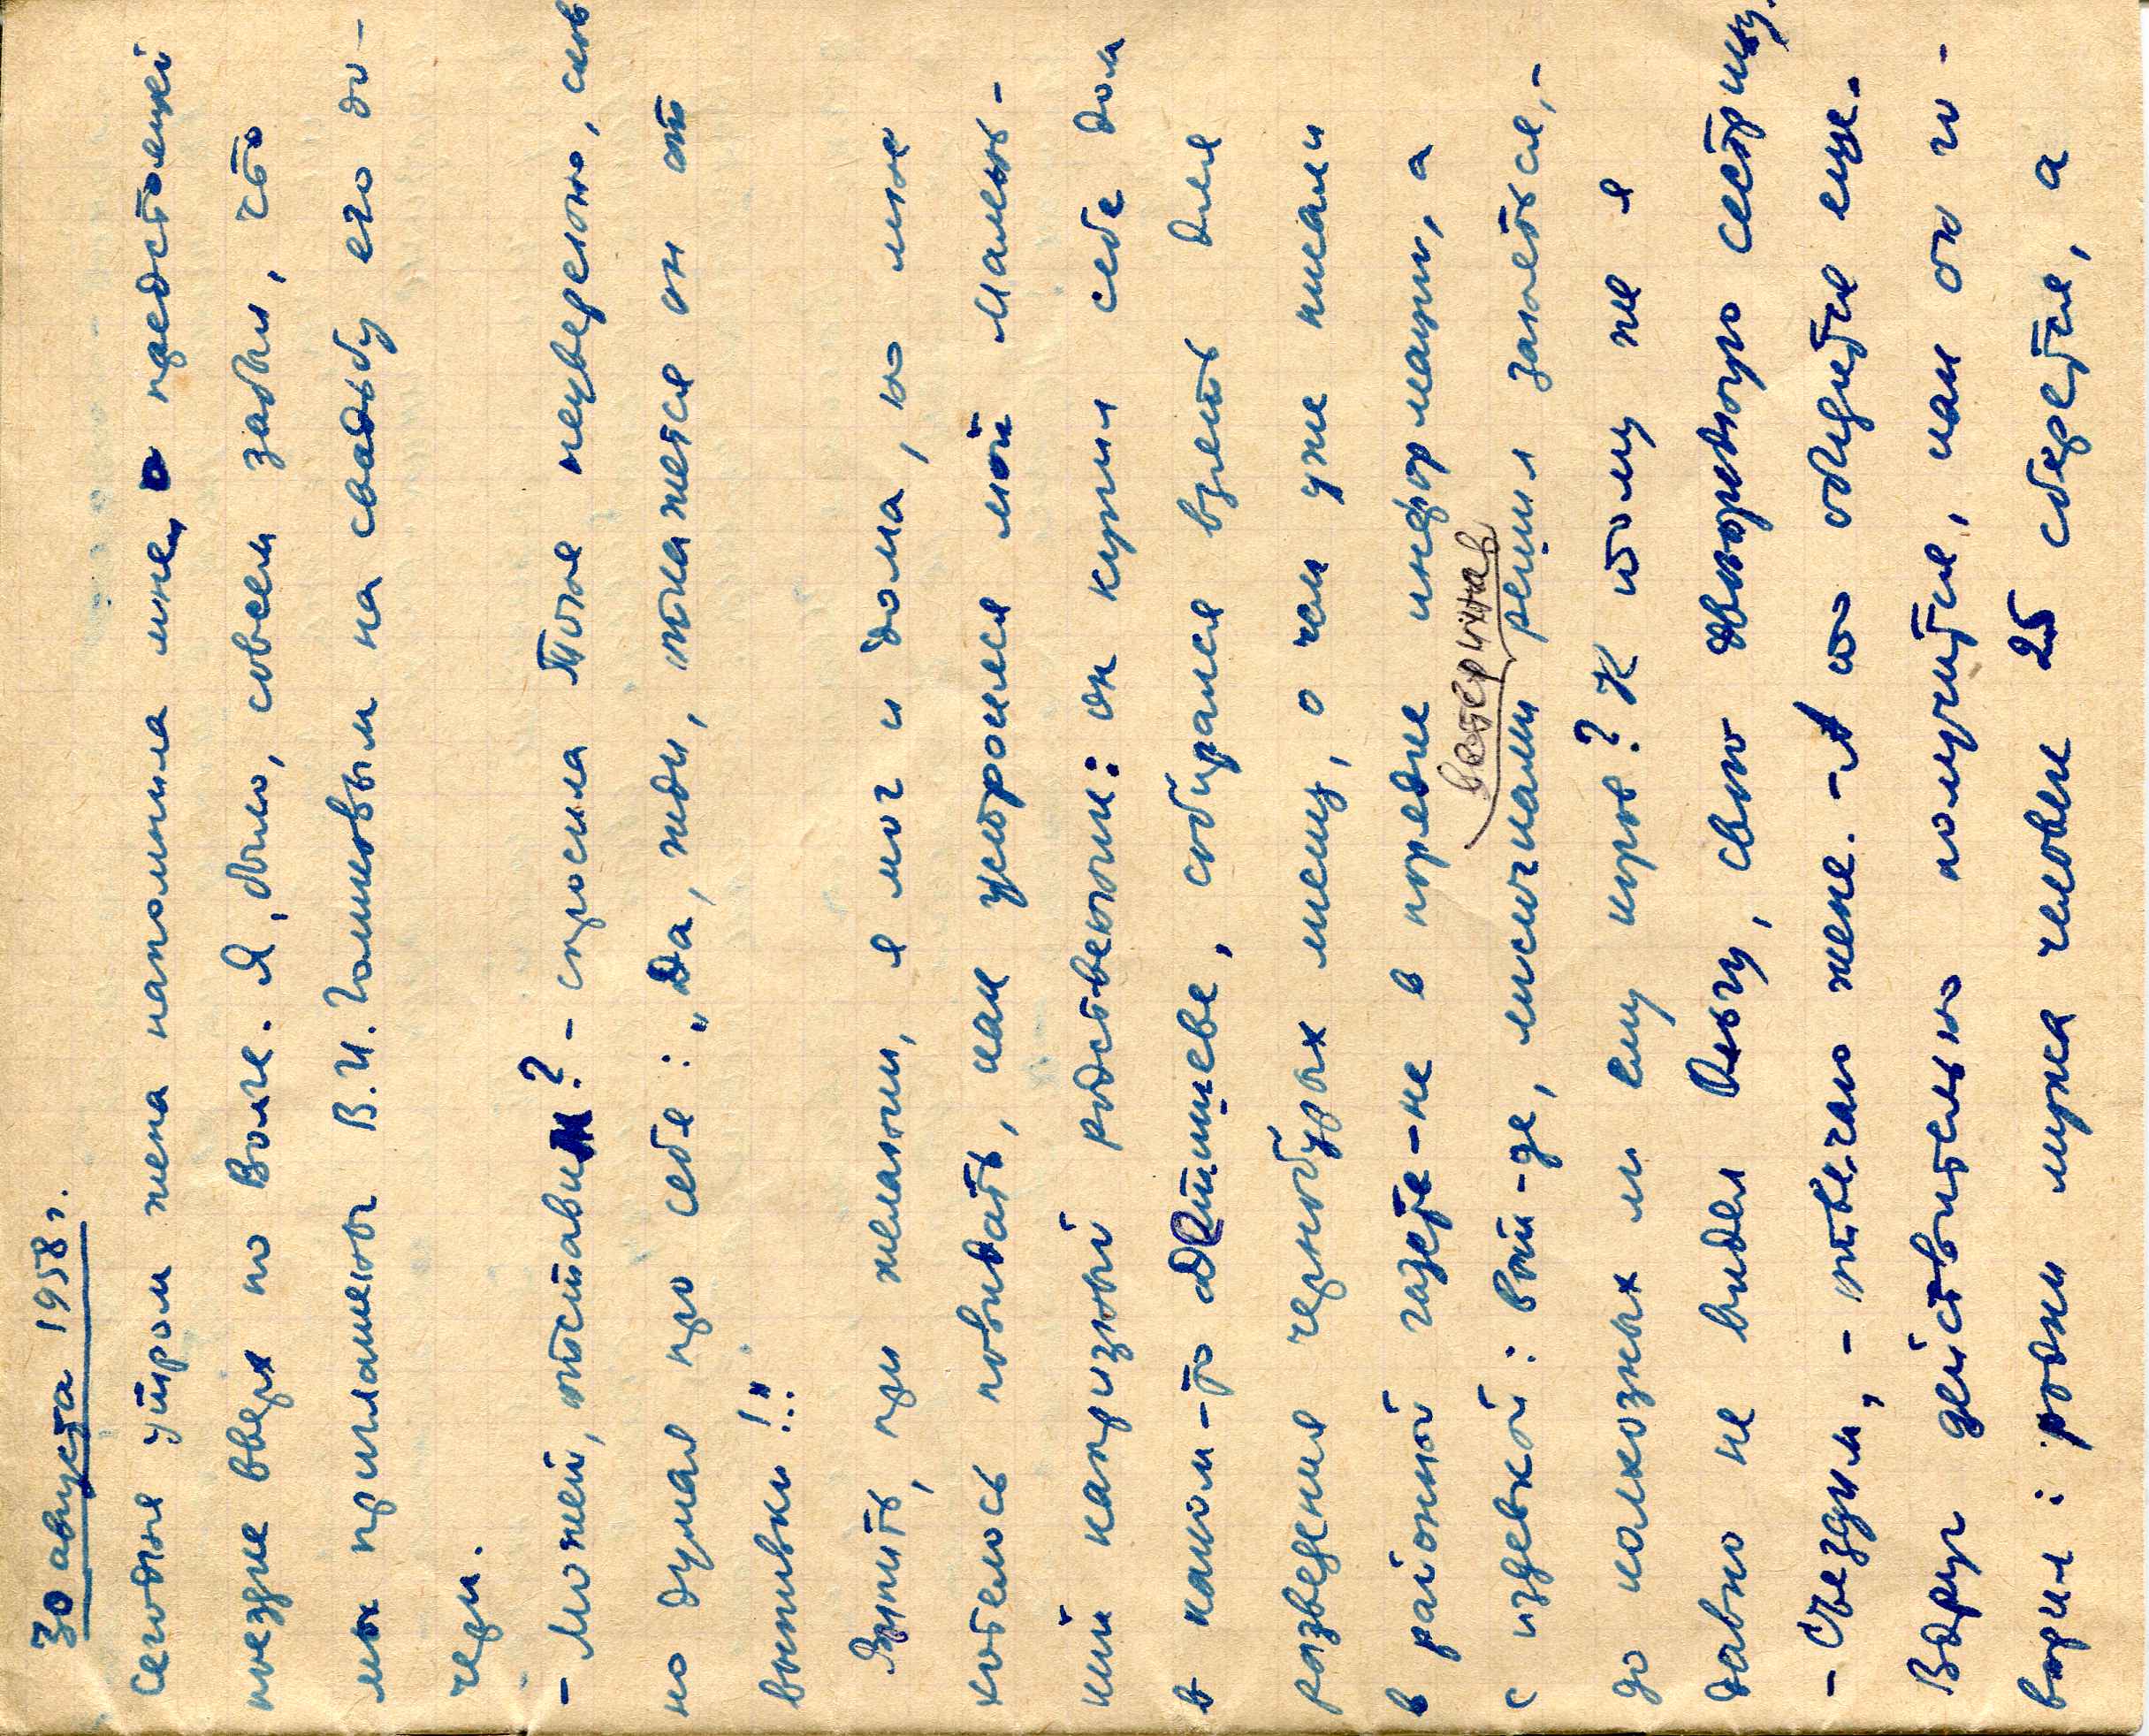 30 августа 1958 г.
Сегодня утром жена напомнила мне о предстоящей
поездке вверх по Волге. Я, было, совсем забыл, что
мы приглашены В. И. на свадьбу его до-
чери.
- Может, отставим? - спросила Тоня неуверенно, слов
но думая про себя: „Да, жди, откажется он от
выпивки!.."
Выпить, при желании, я мог и дома, но мне
хотелось повидать, как устроился мой малень-
кий капризный родственник: он купил себе дом
в каком-то детищеве, собирался взять для
разведения чернобурых лисиц, о чем уже писали
в районной газете - не в порядке информации, а
ветеринар
с издевкой: вот-де, лисичками решил заняться, -
до колхозных ли ему коров? К тому же я
давно не видел Ольгу, свою двоюродную сестрицу.
- Съездим, - отвечаю жене. - А то обидятся еще.
Вдруг действительно получится, как он го-
ворил: родни мужа человек 25 соберется, а